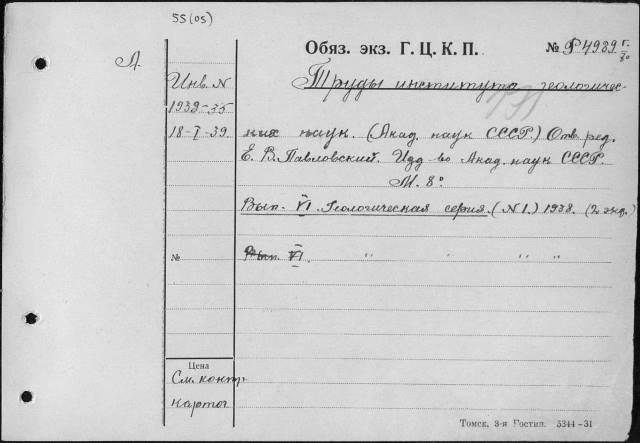 55 (05)
Обяз. экз. Г. Ц. К. П. № Р4939 г/80
А
Инв. N
1939-35
18-I-39
Труды института геологичес-
ких наук. (Акад. наук СССР.) Отв. ред.
Е. В. Павловский. Изд-во Акад. наук СССР.
М. 8°
Вып. VI. Геологическая серия. (N 1.) 1938. (2 экз.)
№
Вып. VI. " " " "
Цена
См. контр.
картог
Томск, 3-я Гостип. 5344-31